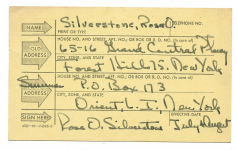 NAME Silverstone, Rose O. TELEPHONE NO.
PRINT OR TYPE
HOUSE NO. AND ST., APT. NO. OR BOX OR R. D. NO. (In care of)
OLD ADDRESS 65-16 Grand Central Pkwy
CITY, ZONE, AND STATE
Forest Hills 75, New York
HOUSE NO. AND ST., APT. NO. OR BOX OR R. D. NO. (In care of)
Summer P.O. Box 173
ADDRESS CITY, ZONE, AND STATE
Orient, L. I., New York
SIGN HERE EFFECTIVE DATE
Rose O. Silverstone July, August